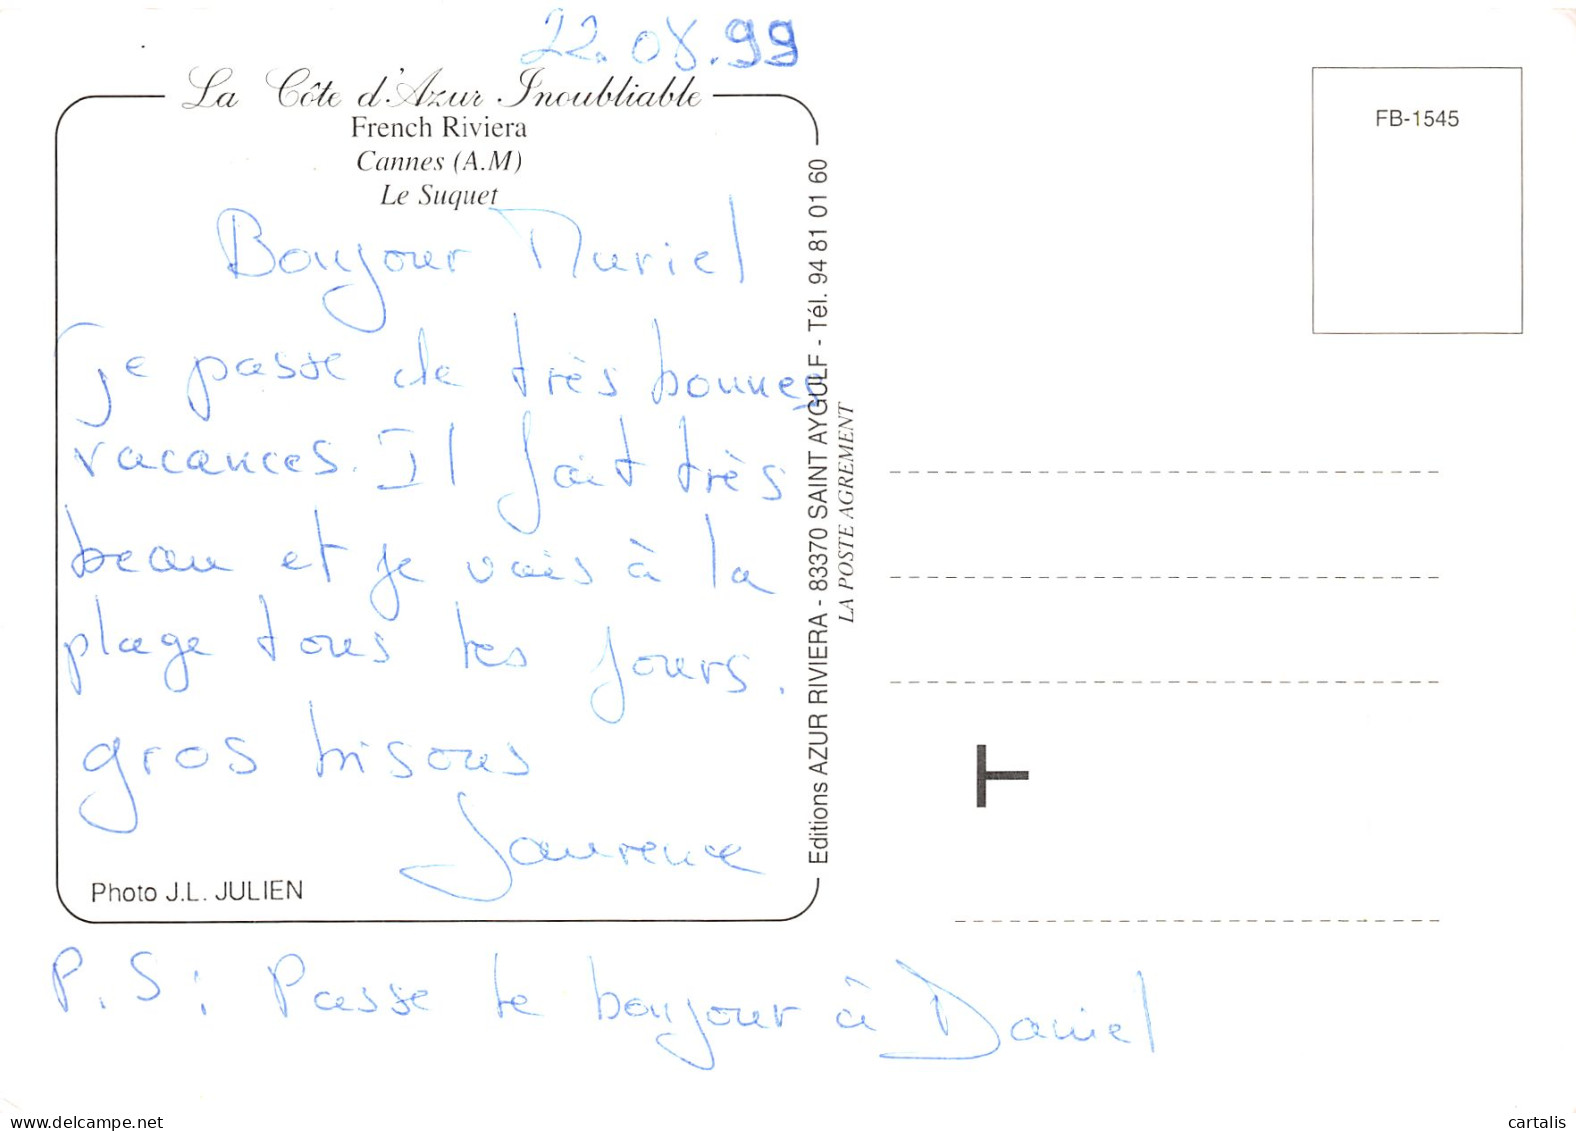 22.08.99
La Côte d'Azur Inoubliable
French Riviera
Cannes (A.M)
Le Suquet
Bonjour Muriel
je passe de très bonnes
vacances. Il fait très
beau et je vais à la
plage tous les jours.
gros bisous
Laurence
Photo J.L. JULIEN
P.S: Passe le bonjour à Daniel
Editions AZUR RIVIERA - 83370 SAINT AYGULF - Tél. 94 81 01 60
LA POSTE AGREMENT
FB-1545
T
cartalis